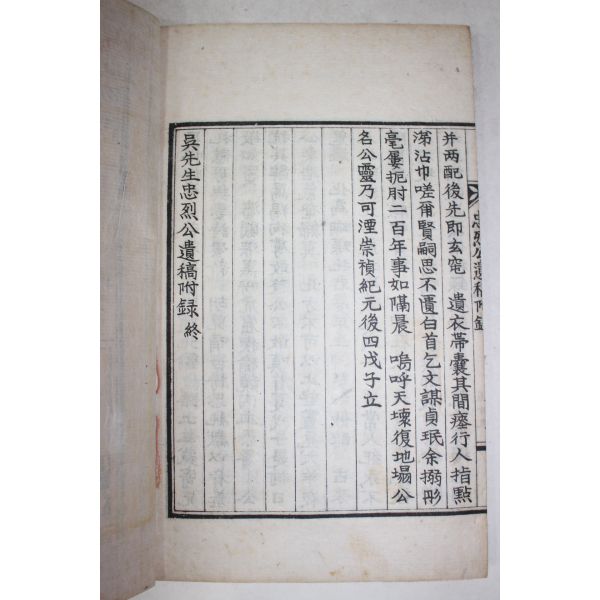 忠烈公遺稿附錄
并两配後先即玄窀 遺衣帶囊其間瘞行人指點
涕沾巾嗟爾賢嗣思不匱白首乞文謀貞珉余搦彤
毫屢扼肘二百年事如隔晨 嗚呼天壞復地塌公
名公靈乃可湮崇禎紀元後四戊子立
吳先生忠烈公遺稿附録 終